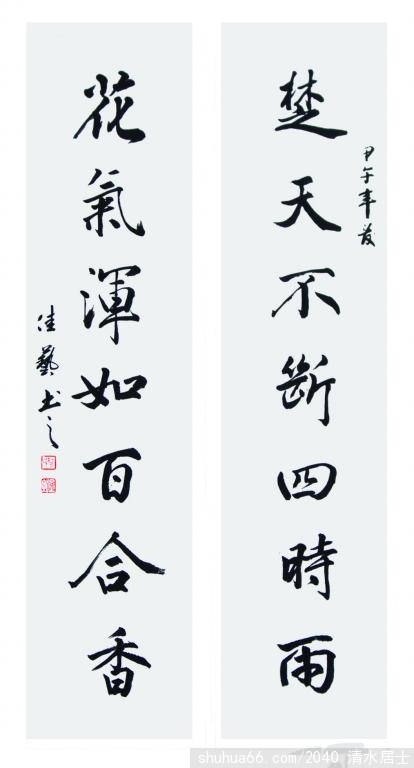 楚天不斷四時雨
甲午年夏
花氣渾如百合香
佳藝书之
shuhua66.com/2040 清水居士